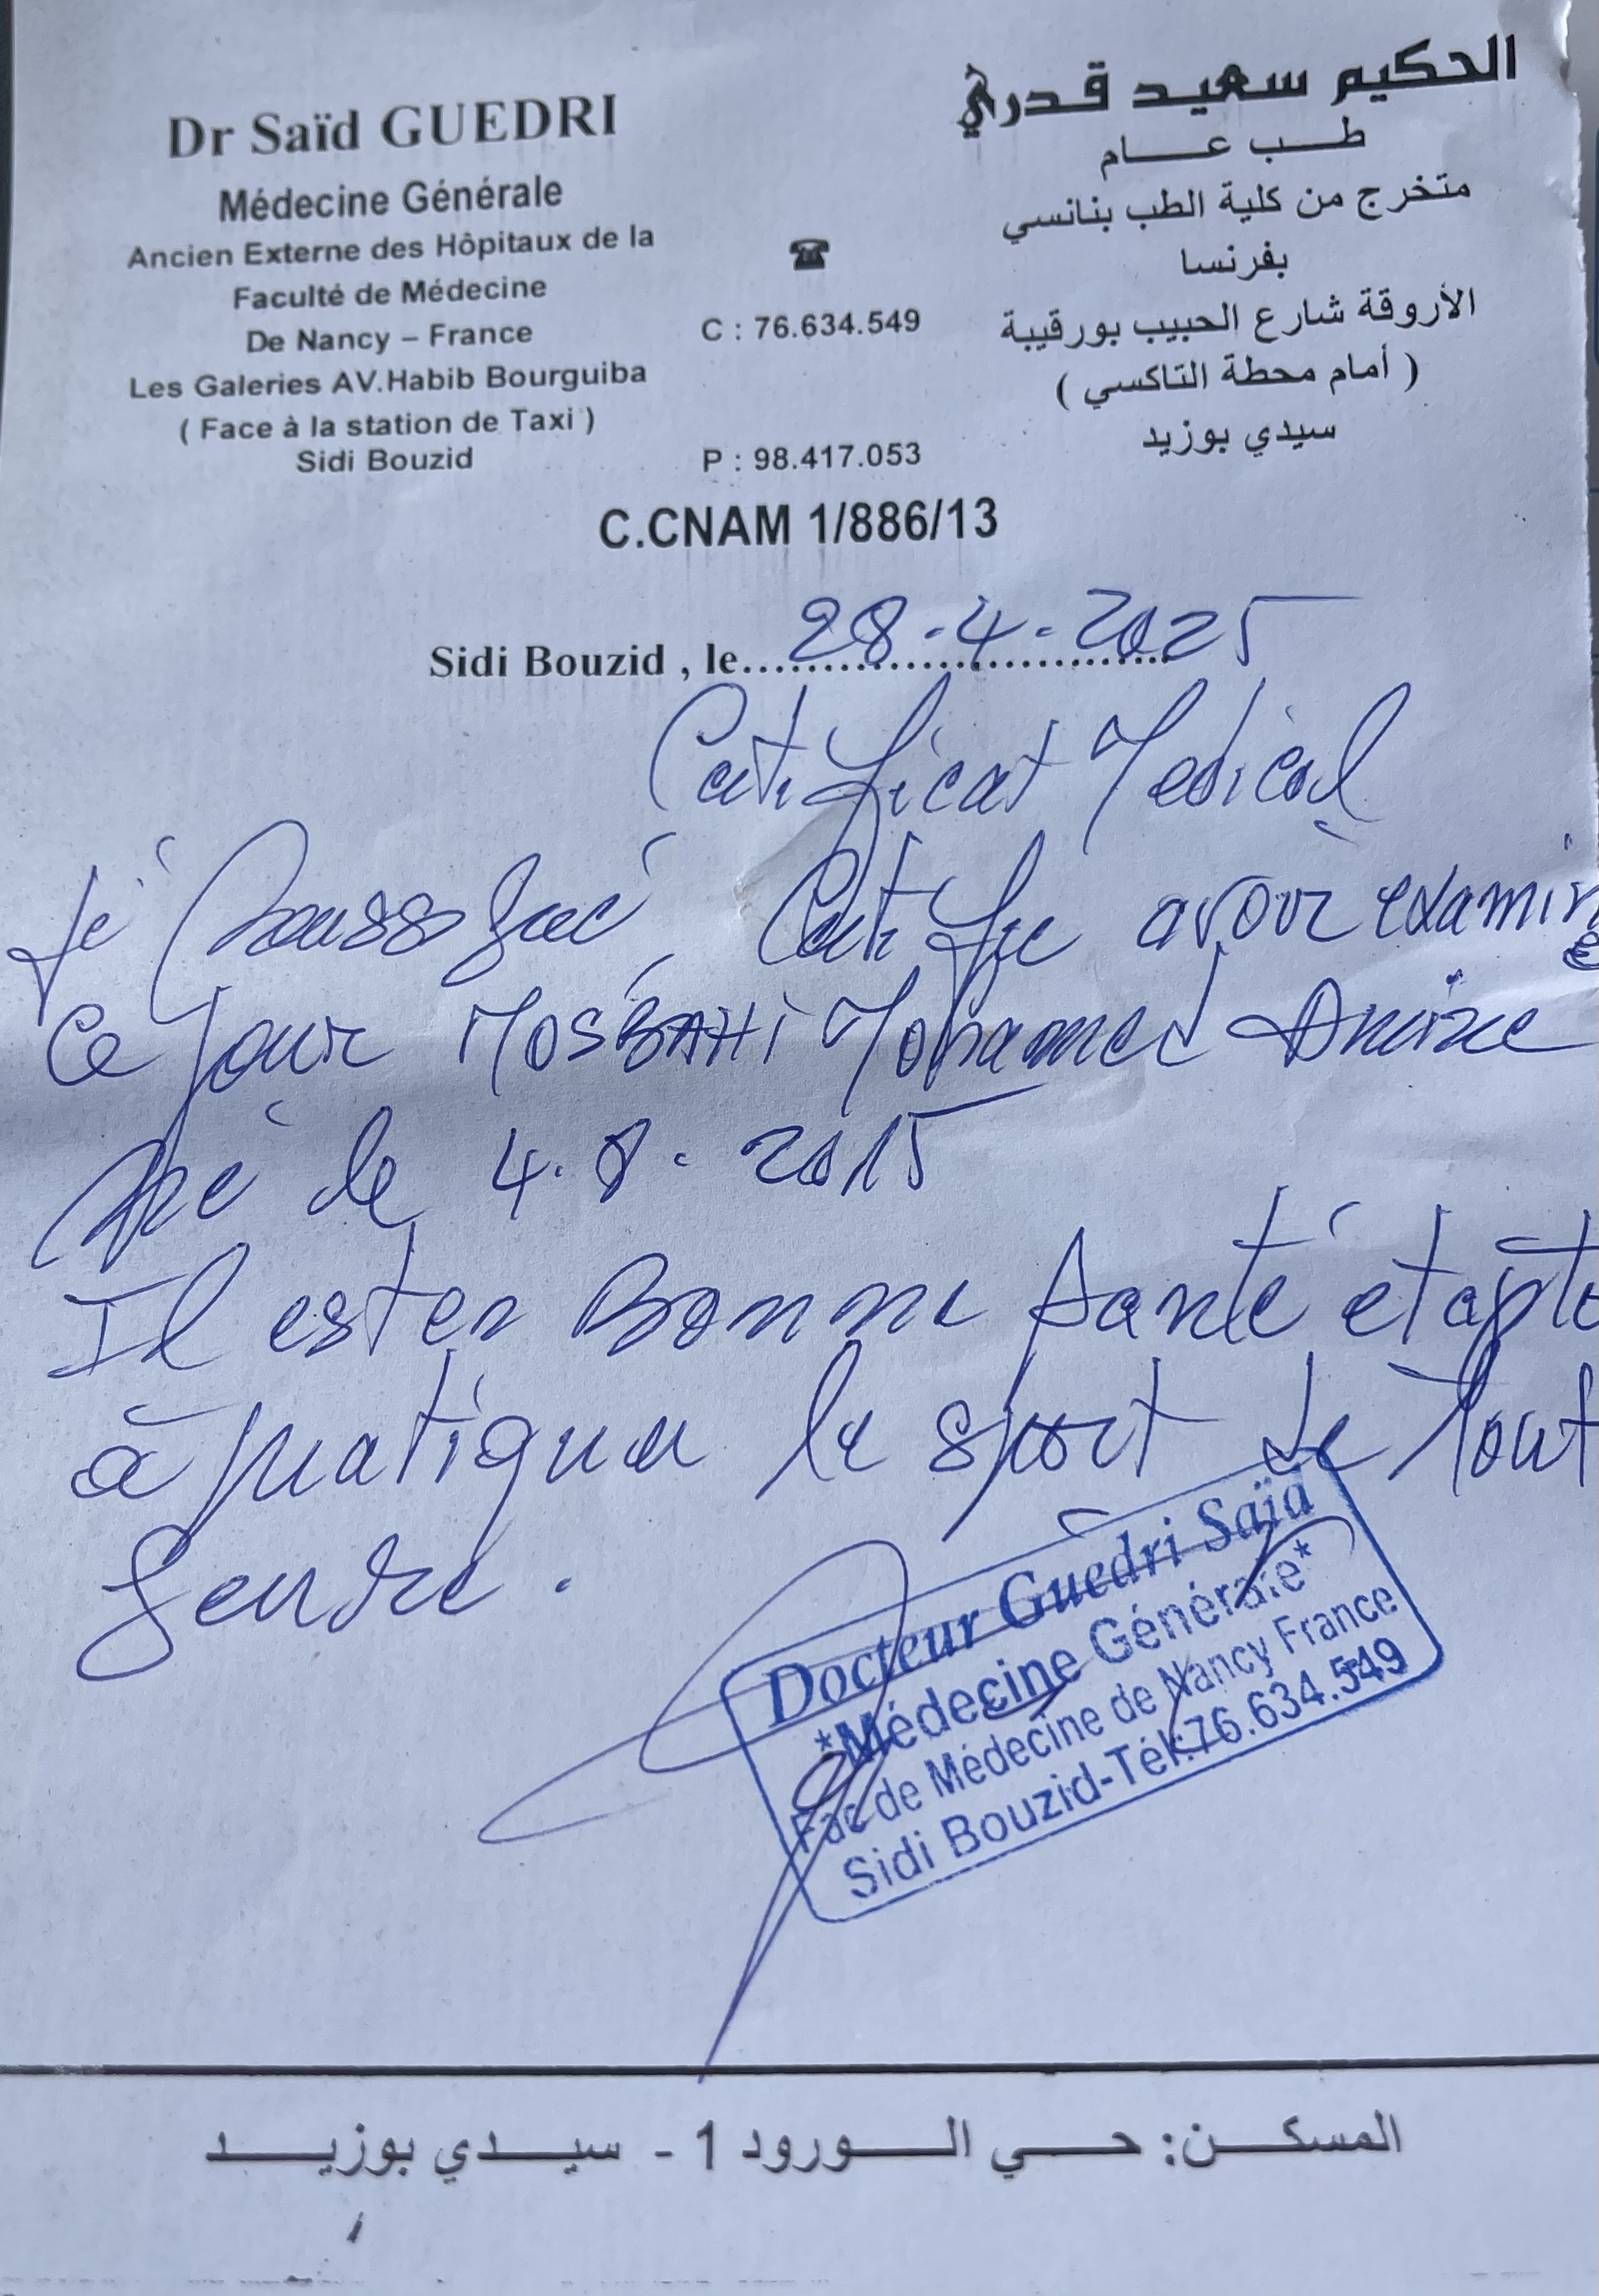 Dr Saïd GUEDRI
Médecine Générale
Ancien Externe des Hôpitaux de la
Faculté de Médecine
De Nancy – France
Les Galeries AV.Habib Bourguiba
( Face à la station de Taxi )
Sidi Bouzid
☎
C : 76.634.549
P : 98.417.053
الحكيم سعيد قدري
طب عام
متخرج من كلية الطب بنانسي
بفرنسا
الأروقة شارع الحبيب بورقيبة
( أمام محطة التاكسي )
سيدي بوزيد
C.CNAM 1/886/13
Sidi Bouzid , le 28-4-2025
Certificat Medical
Je Soussigné, Certifie avoir examiné
Ce jour MOSBAHI Mohamed
Né le 4.8.2015
Il est en Bonne Santé et apte
à pratiquer le sport de tout
Genre.
Docteur Guedri Saïd
*Médecine Générale*
Fac de Médecine de Nancy France
Sidi Bouzid-Tél:76.634.549
المسكن: حي الورود 1 - سيدي بوزيد